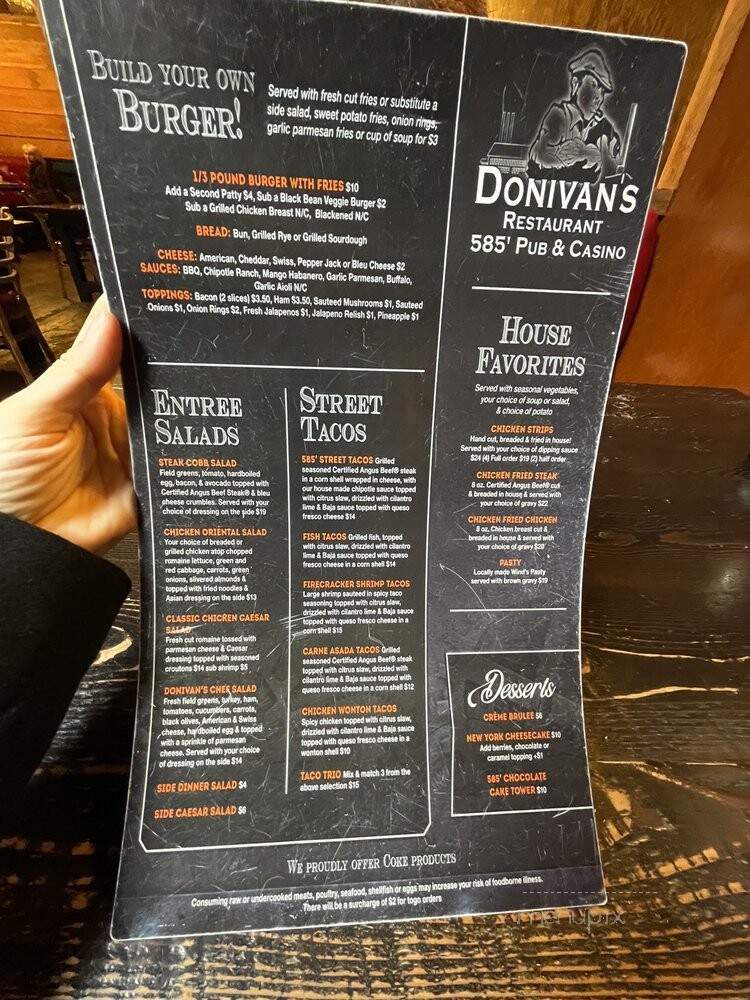 BUILD YOUR OWN
BURGER!
Served with fresh cut fries or substitute a
side salad, sweet potato fries, onion rings,
garlic parmesan fries or cup of soup for $3
1/3 POUND BURGER WITH FRIES $10
Add a Second Patty $4, Sub a Black Bean Veggie Burger $2
Sub a Grilled Chicken Breast N/C, Blackened N/C
BREAD: Bun, Grilled Rye or Grilled Sourdough
CHEESE: American, Cheddar, Swiss, Pepper Jack or Bleu Cheese $2
SAUCES: BBQ, Chipotle Ranch, Mango Habanero, Garlic Parmesan, Buffalo,
Garlic Aioli N/C
TOPPINGS: Bacon (2 slices) $3.50, Ham $3.50, Sauteed Mushrooms $1, Sauteed
Onions $1, Onion Rings $2, Fresh Jalapenos $1, Jalapeno Relish $1, Pineapple $1
ENTREE
SALADS
STEAK COBB SALAD
Field greens, tomato, hardboiled
egg, bacon, & avocado topped with
Certified Angus Beef Steak® & bleu
cheese crumbles. Served with your
choice of dressing on the side $19
CHICKEN ORIENTAL SALAD
Your choice of breaded or
grilled chicken atop chopped
romaine lettuce, green and
red cabbage, carrots, green
onions, slivered almonds &
topped with fried noodles &
Asian dressing on the side $13
CLASSIC CHICKEN CAESAR
SALAD
Fresh cut romaine tossed with
parmesan cheese & Caesar
dressing topped with seasoned
croutons $14 sub shrimp $5
DONIVAN'S CHEF SALAD
Fresh field greens, turkey, ham,
tomatoes, cucumbers, carrots,
black olives, American & Swiss
cheese, hardboiled egg & topped
with a sprinkle of parmesan
cheese. Served with your choice
of dressing on the side $14
SIDE DINNER SALAD $4
SIDE CAESAR SALAD $6
STREET
TACOS
585' STREET TACOS Grilled
seasoned Certified Angus Beef® steak
in a corn shell wrapped in cheese, with
our house made chipotle sauce topped
with citrus slaw, drizzled with cilantro
lime & Baja sauce topped with queso
fresco cheese $14
FISH TACOS Grilled fish, topped
with citrus slaw, drizzled with cilantro
lime & Baja sauce topped with queso
fresco cheese in a corn shell $14
FIRECRACKER SHRIMP TACOS
Large shrimp sauteed in spicy taco
seasoning topped with citrus slaw,
drizzled with cilantro lime & Baja sauce
topped with queso fresco cheese in a
corn shell $15
CARNE ASADA TACOS Grilled
seasoned Certified Angus Beef® steak
topped with citrus slaw, drizzled with
cilantro lime & Baja sauce topped with
queso fresco cheese in a corn shell $12
CHICKEN WONTON TACOS
Spicy chicken topped with citrus slaw,
drizzled with cilantro lime & Baja sauce
topped with queso fresco cheese in a
wonton shell $10
TACO TRIO Mix & match 3 from the
above selection $15
DONIVAN'S
RESTAURANT
585' PUB & CASINO
HOUSE
FAVORITES
Served with seasonal vegetables,
your choice of soup or salad,
& choice of potato
CHICKEN STRIPS
Hand cut, breaded & fried in house!
Served with your choice of dipping sauce
$24 (4) Full order $19 (2) half order
CHICKEN FRIED STEAK
8 oz. Certified Angus Beef® cut
& breaded in house & served with
your choice of gravy $22
CHICKEN FRIED CHICKEN
8 oz. Chicken breast cut &
breaded in house & served with
your choice of gravy $20
PASTY
Locally made Wind's Pasty
served with brown gravy $19
Desserts
CRÈME BRULEE $6
NEW YORK CHEESECAKE $10
Add berries, chocolate or
caramel topping +$1
585' CHOCOLATE
CAKE TOWER $10
WE PROUDLY OFFER COKE PRODUCTS
Consuming raw or undercooked meats, poultry, seafood, shellfish or eggs may increase your risk of foodborne illness.
There will be a surcharge of $2 for togo orders
menupix